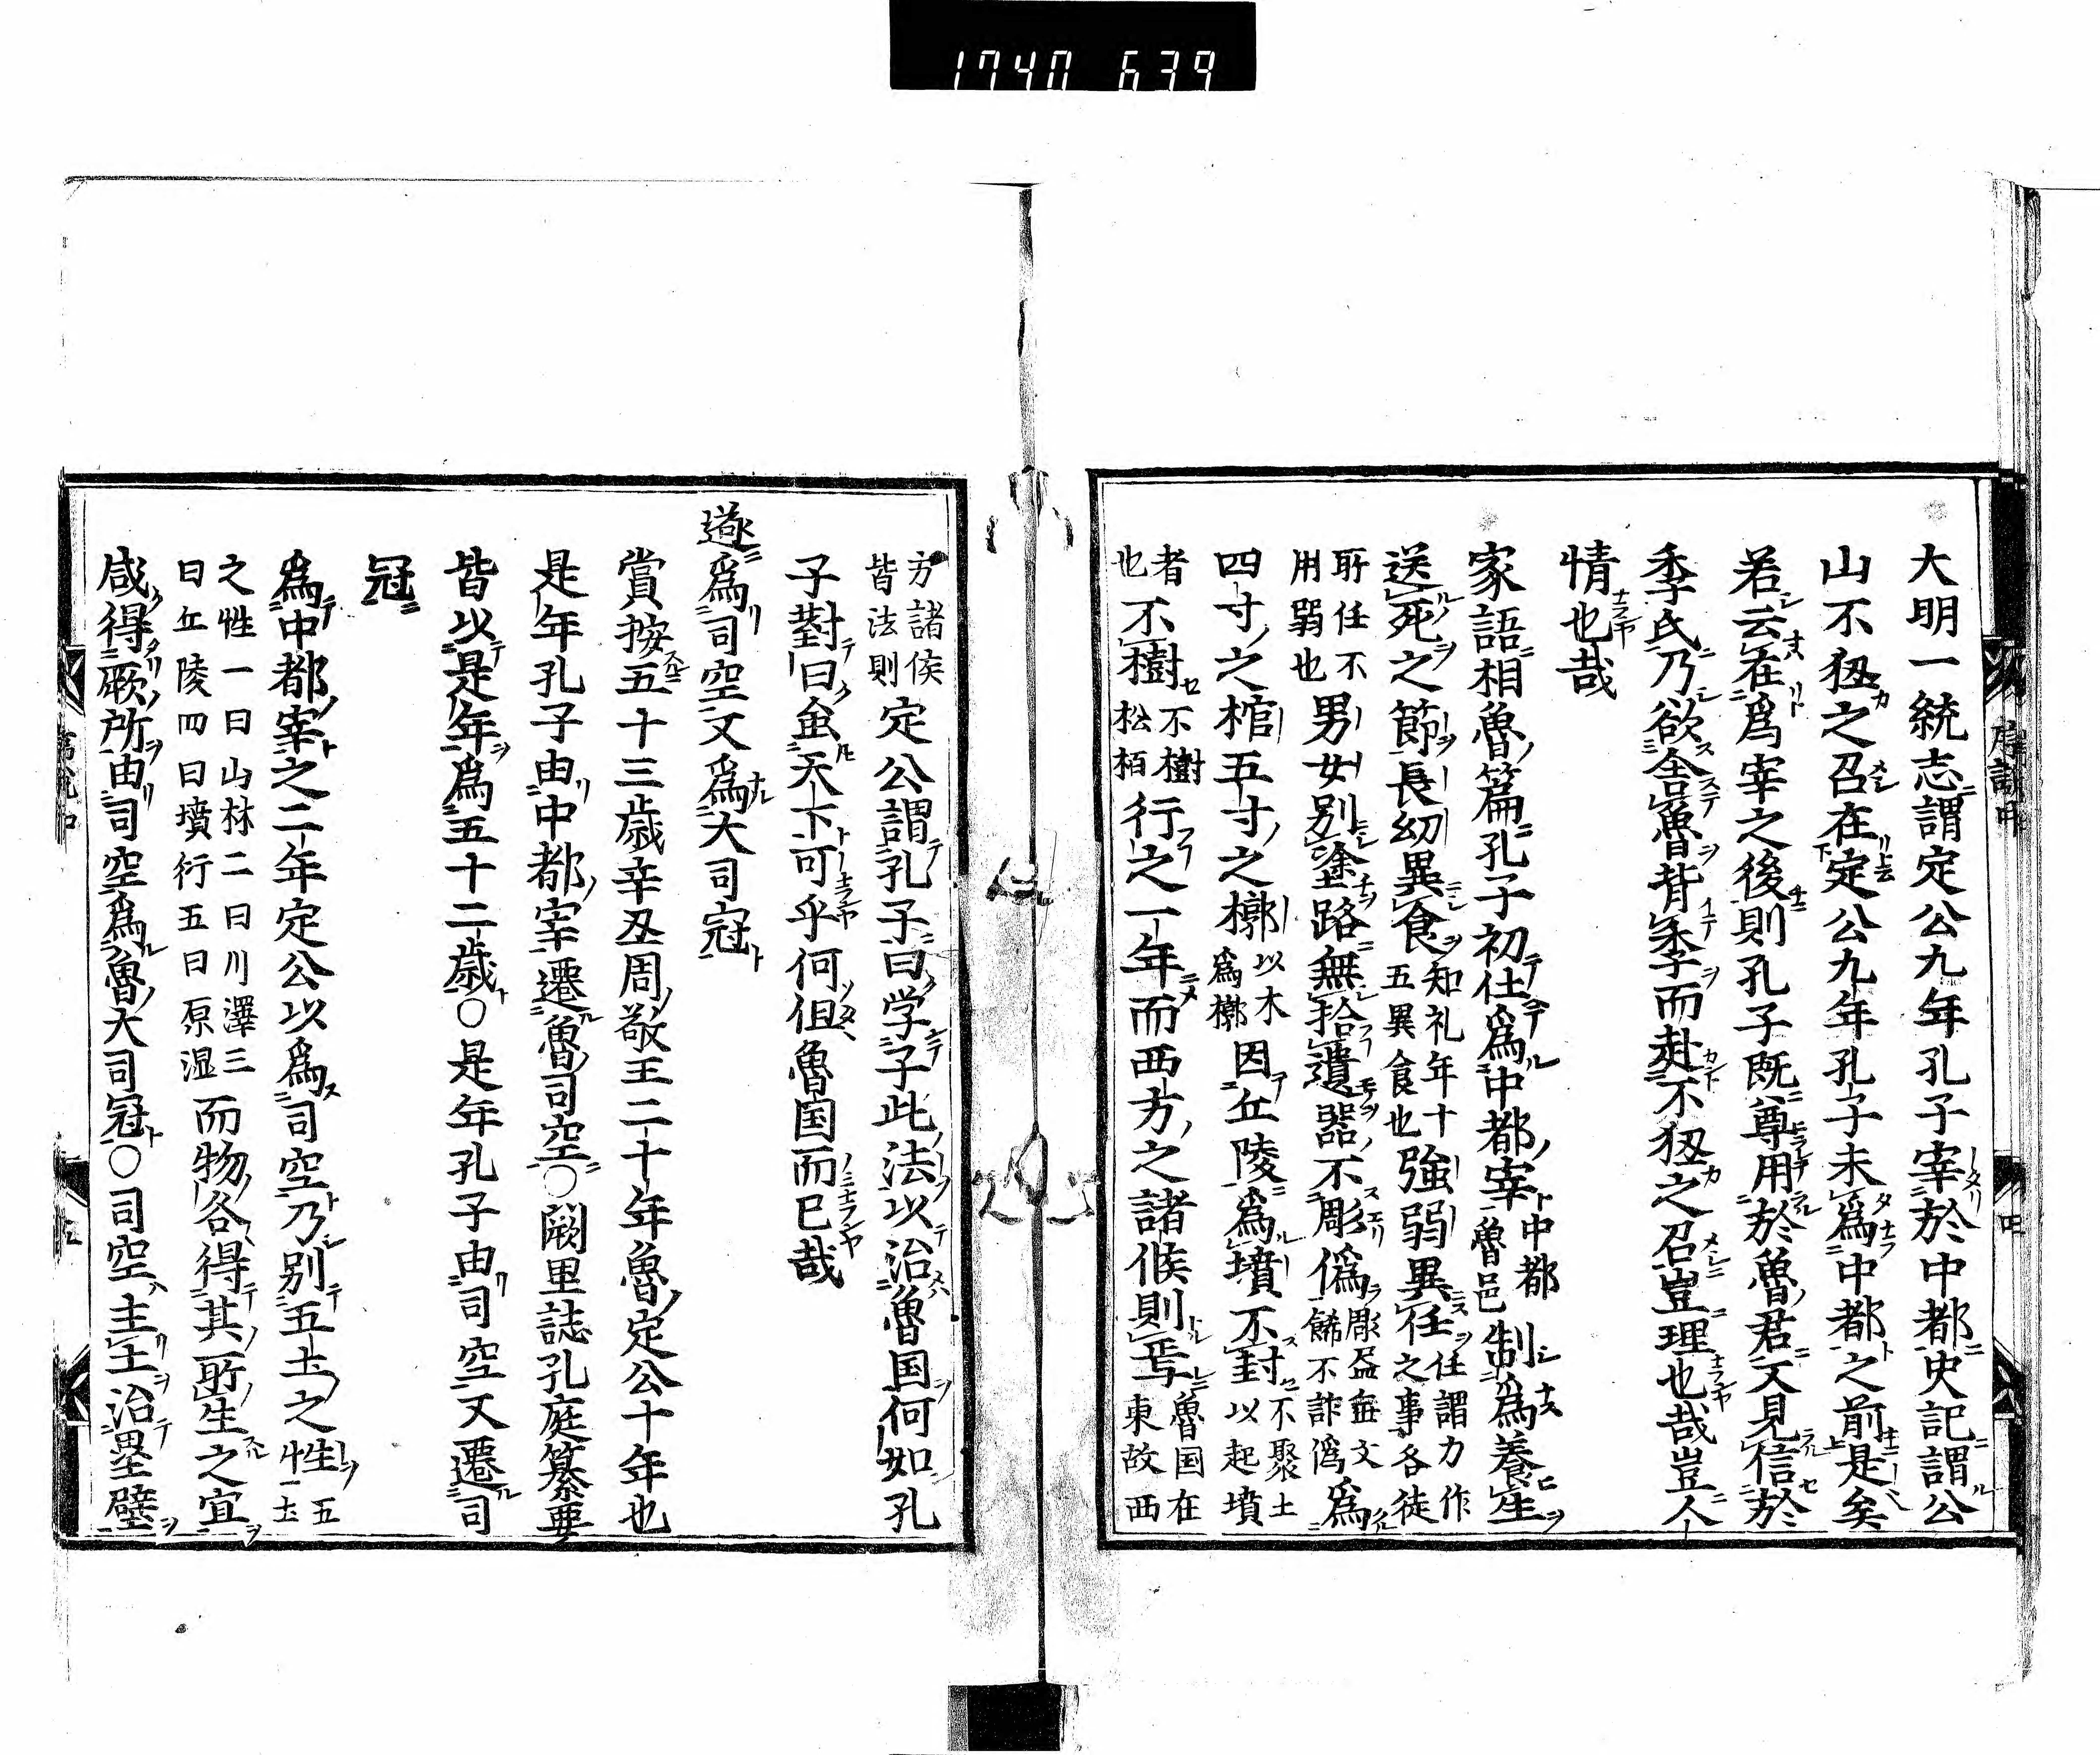 1740 639
大明一統志謂定公九年孔子宰於中都史記謂公
山不狃之召在定公九年孔子未爲中都之前是矣
若云在爲宰之後則孔子既尊用於魯君又見信於
季氏乃欲舍魯背季而赴不狃之召豈理也哉豈人
情也哉
家語相魯篇孔子初仕爲中都宰中都魯邑制爲養生
送死之節長幼異食知礼年十五異食也強弱異任任謂力作之事各徒
所任不用弱也男女別塗路無拾遺器不彫偽彫画無文餙不詐偽爲
四寸之棺五寸之槨以木爲槨因丘陵爲墳不封不聚土以起墳
者也不樹不樹松栢行之一年而西方之諸侯則焉魯国在東故西
方諸侯皆法則定公謂孔子曰学子此法以治魯国何如孔
子對曰虽天下可乎何但魯国而已哉
遂爲司空又爲大司冦
賞按五十三歳辛丑周敬王二十年魯定公十年也
是年孔子由中都宰遷魯司空○闕里誌孔庭纂要
皆以是年爲五十二歳○是年孔子由司空又遷司
冦
爲中都宰之二年定公以爲司空乃別五土之性五土
之性一曰山林二曰川澤三曰丘陵四曰墳行五曰原湿而物各得其所生之宜
咸得厥所由司空爲魯大司冦○司空主土治壘壁